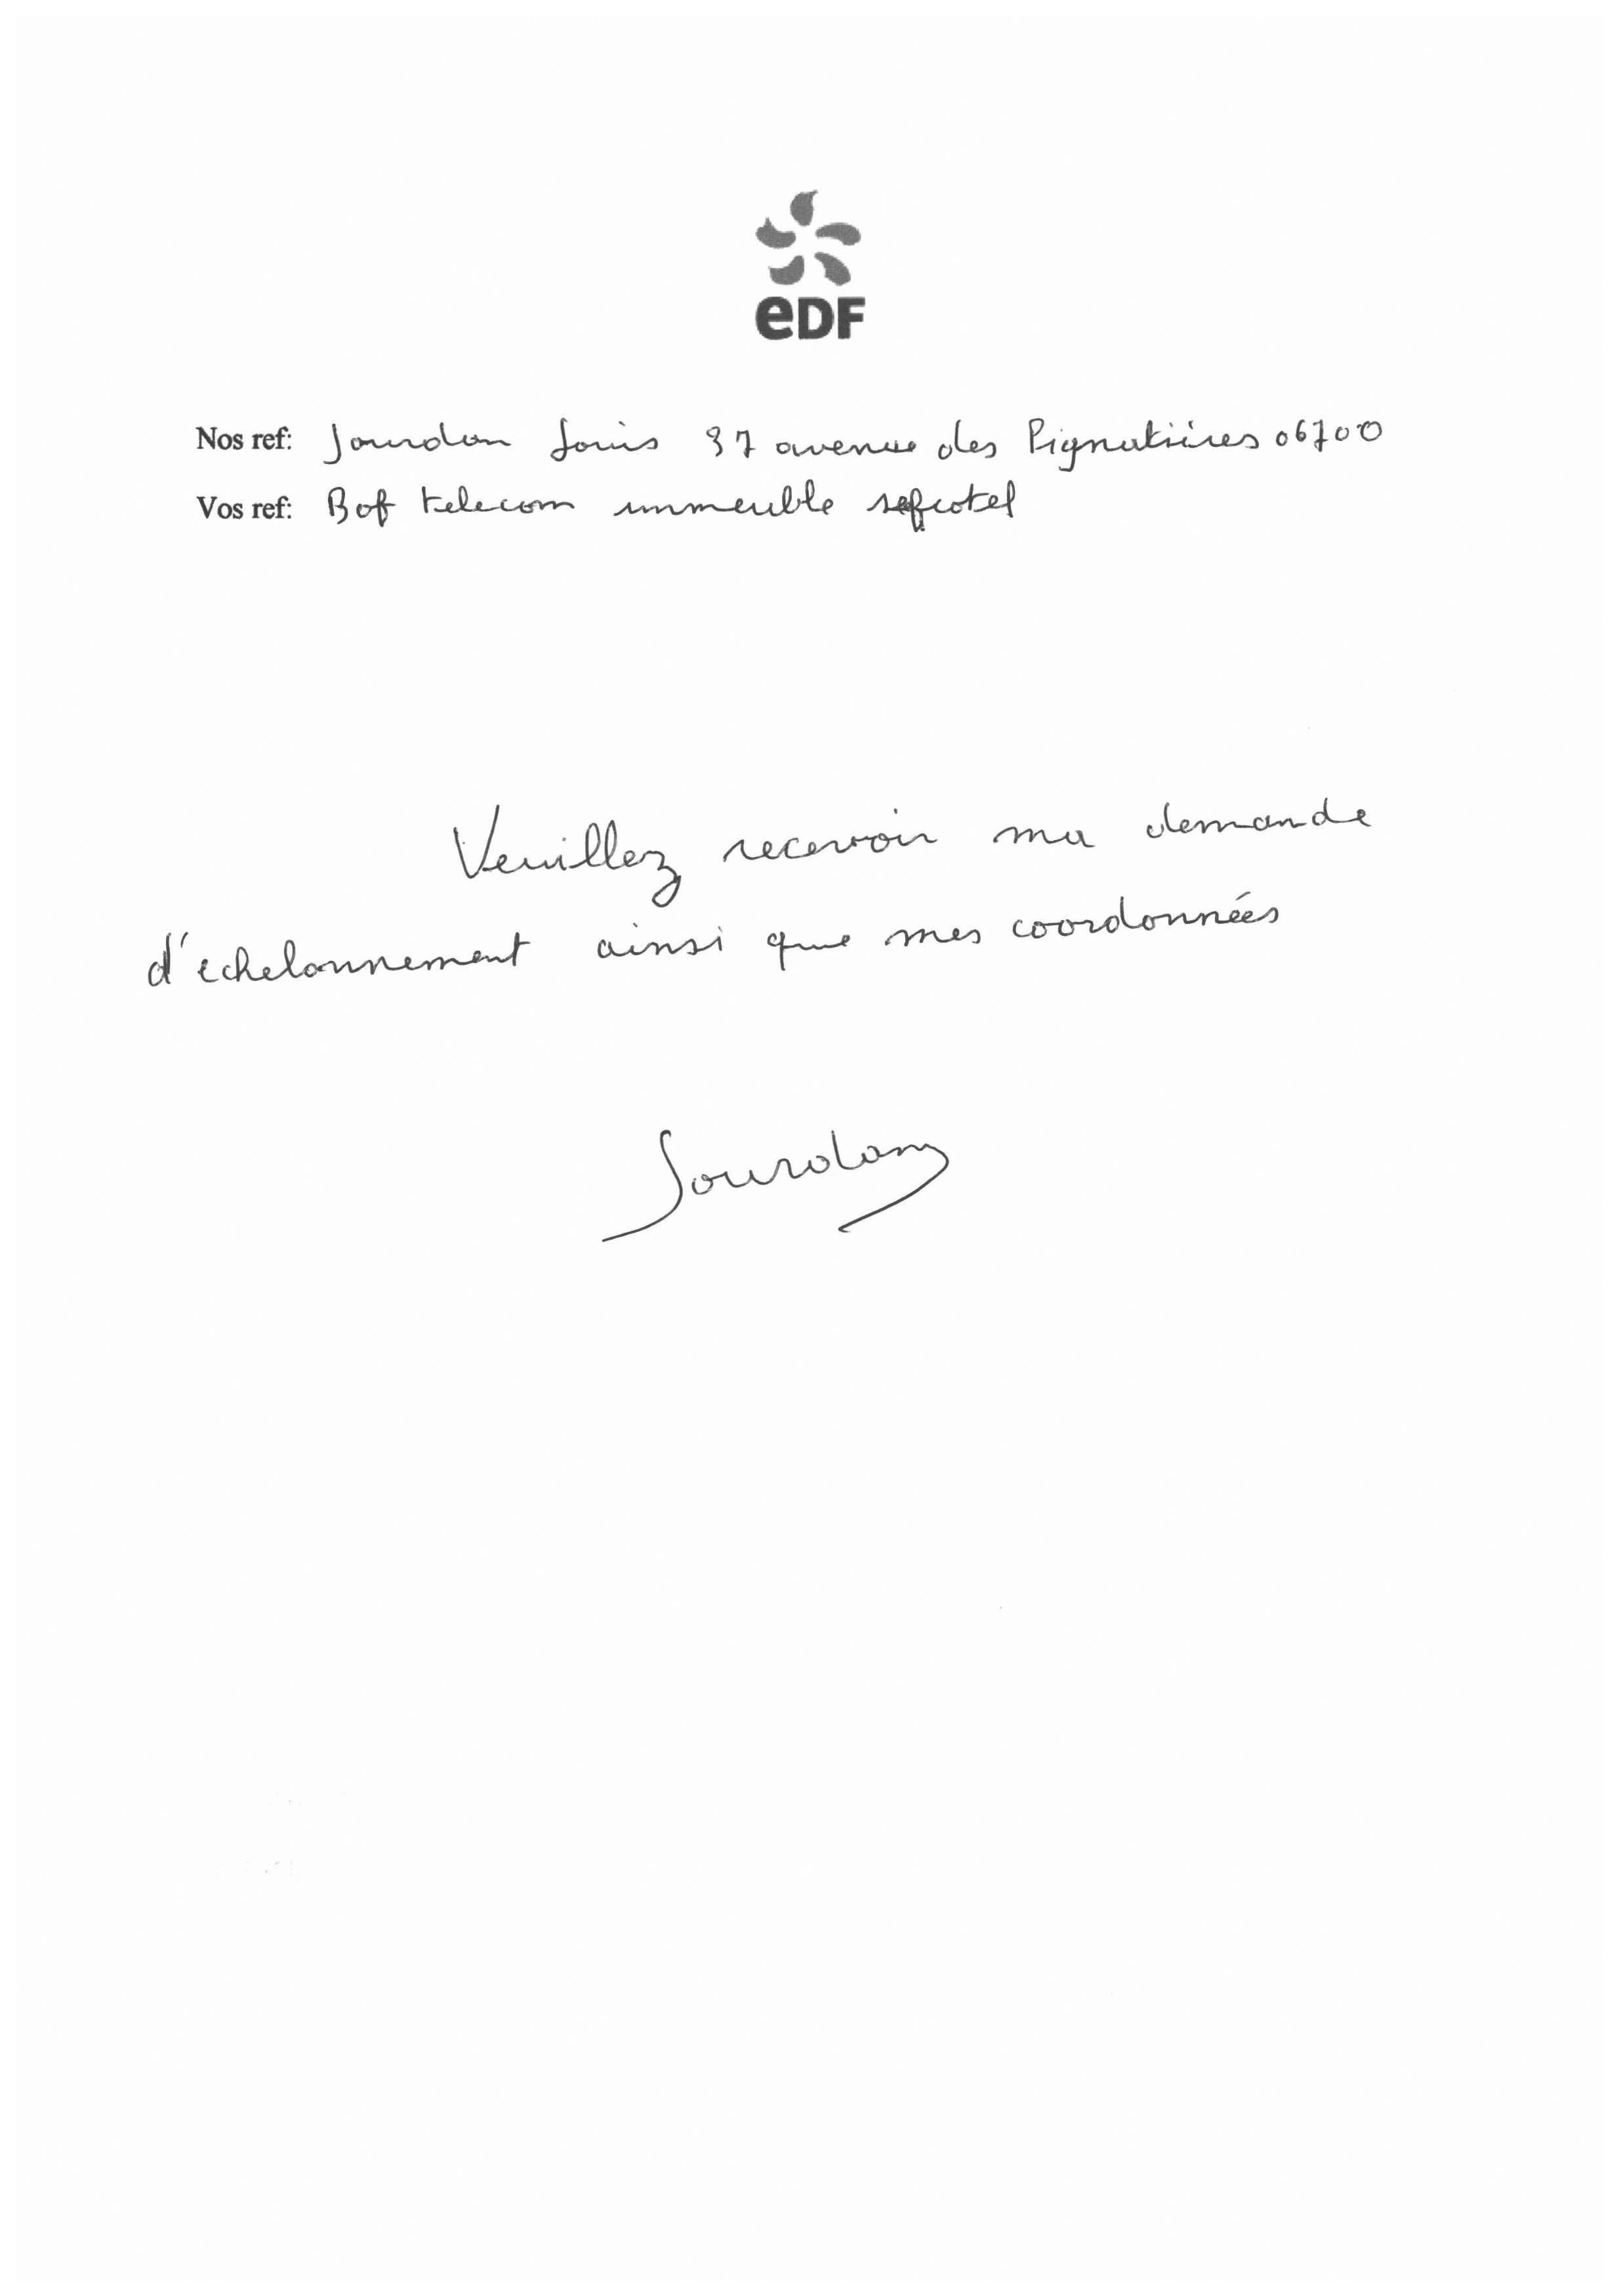 eDF
Nos ref: Jourdan Louis 37 avenue des Pignatières 06700
Vos ref: Bof telecom immeuble
Veuillez recevoir ma demande
d'echelonnement ainsi que mes coordonnées
Jourdan